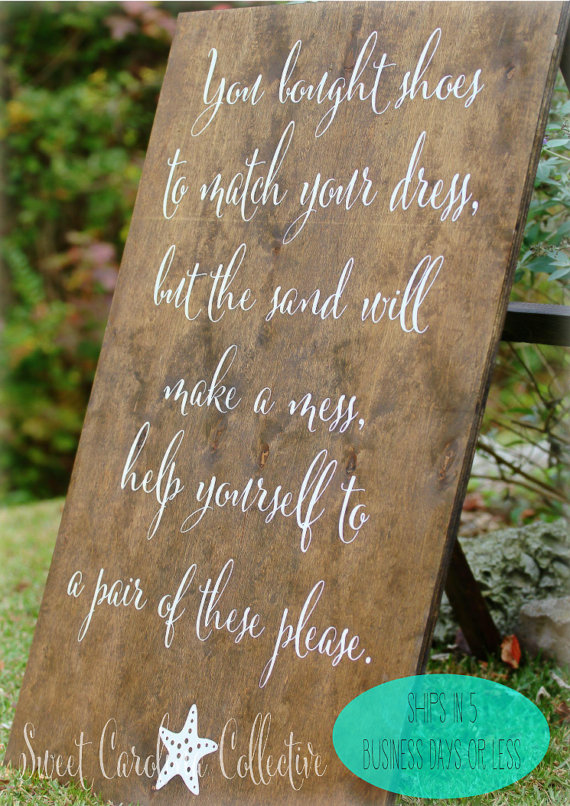 You bought shoes
to match your dress,
but the sand will
make a mess,
help yourself to
a pair of these please.
Sweet Carolina Collective
SHIPS IN 5
BUSINESS DAYS OR LESS